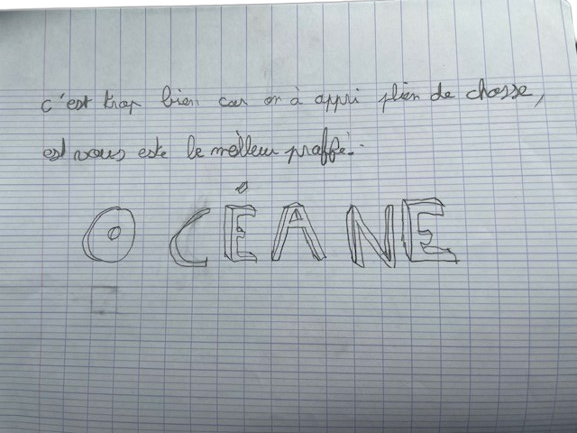 c'est trop bien car on à appri plien de chosse,
est vous este le mèlleur proffe.
OCÉANE